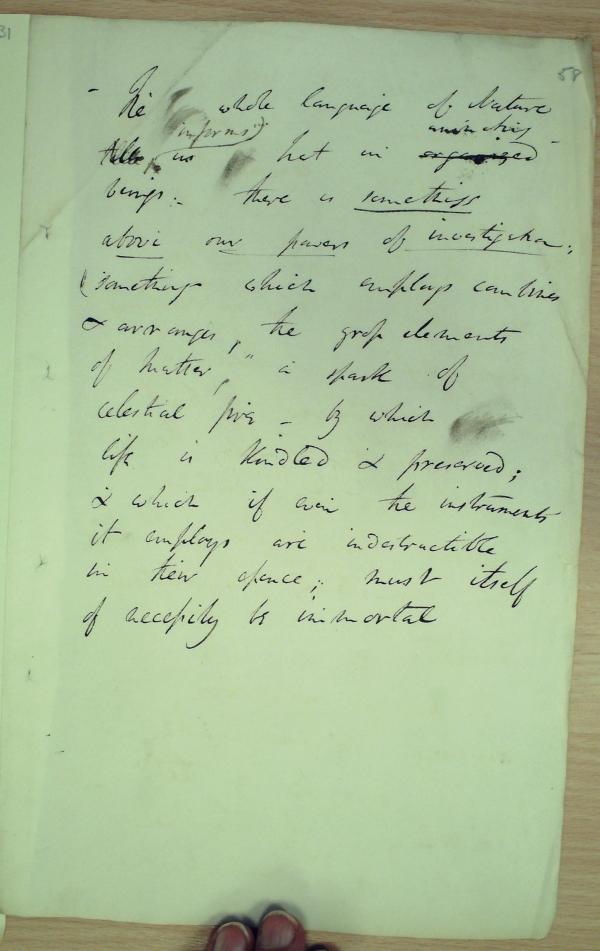 31
58
- The whole language of Nature
informs animating
us that in organized
beings. there is something
above our powers of investigation;
something which employs combines
& arranges, the gross elements
of matter, " a spark of
celestial fire - by which
life is kindled & preserved;
& which if even the instruments
it employs are indestructible
in their essence; must itself
of necessity be immortal